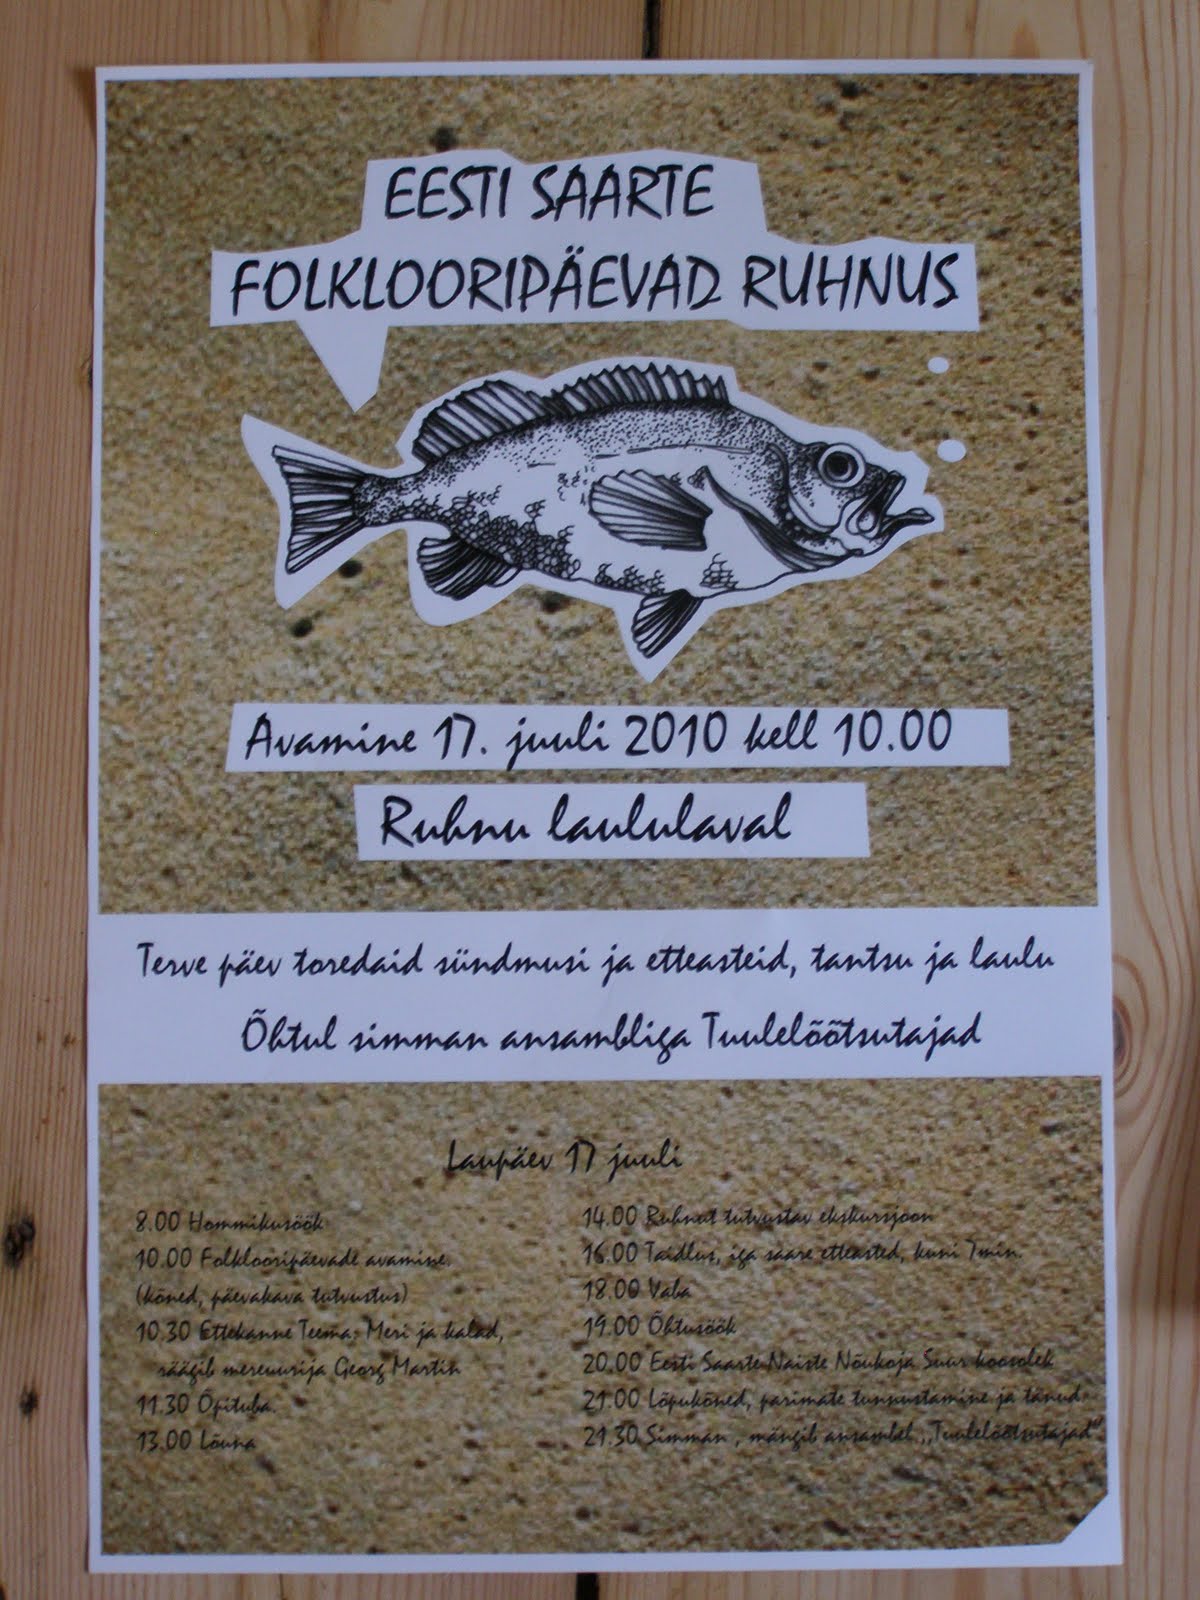 EESTI SAARTE
FOLKLOORIPÄEVAD RUHNUS
Avamine 17. juuli 2010 kell 10.00
Ruhnu laululaval
Terve päev toredaid sündmusi ja etteasteid, tantsu ja laulu
Õhtul simman ansambliga Tuulelõõtsutajad
Laupäev 17 juuli
8.00 Hommikusöök
10.00 Folklooripäevade avamine.
(kõned, päevakava tutvustus)
10.30 Ettekanne Teema: Meri ja kalad,
räägib mereuurija Georg Martin
11.30 Õpituba.
13.00 Lõuna
14.00 Ruhnut tutvustav ekskursjoon
16.00 Taidlus, iga saare etteasted, kuni 7min.
18.00 Vaba
19.00 Õhtusöök
20.00 Eesti Saarte Naiste Nõukoja Suur koosolek
21.00 Lõpukõned, parimate tunnustamine ja tänud.
21.30 Simman , mängib ansambel ,,Tuulelõõtsutajad"